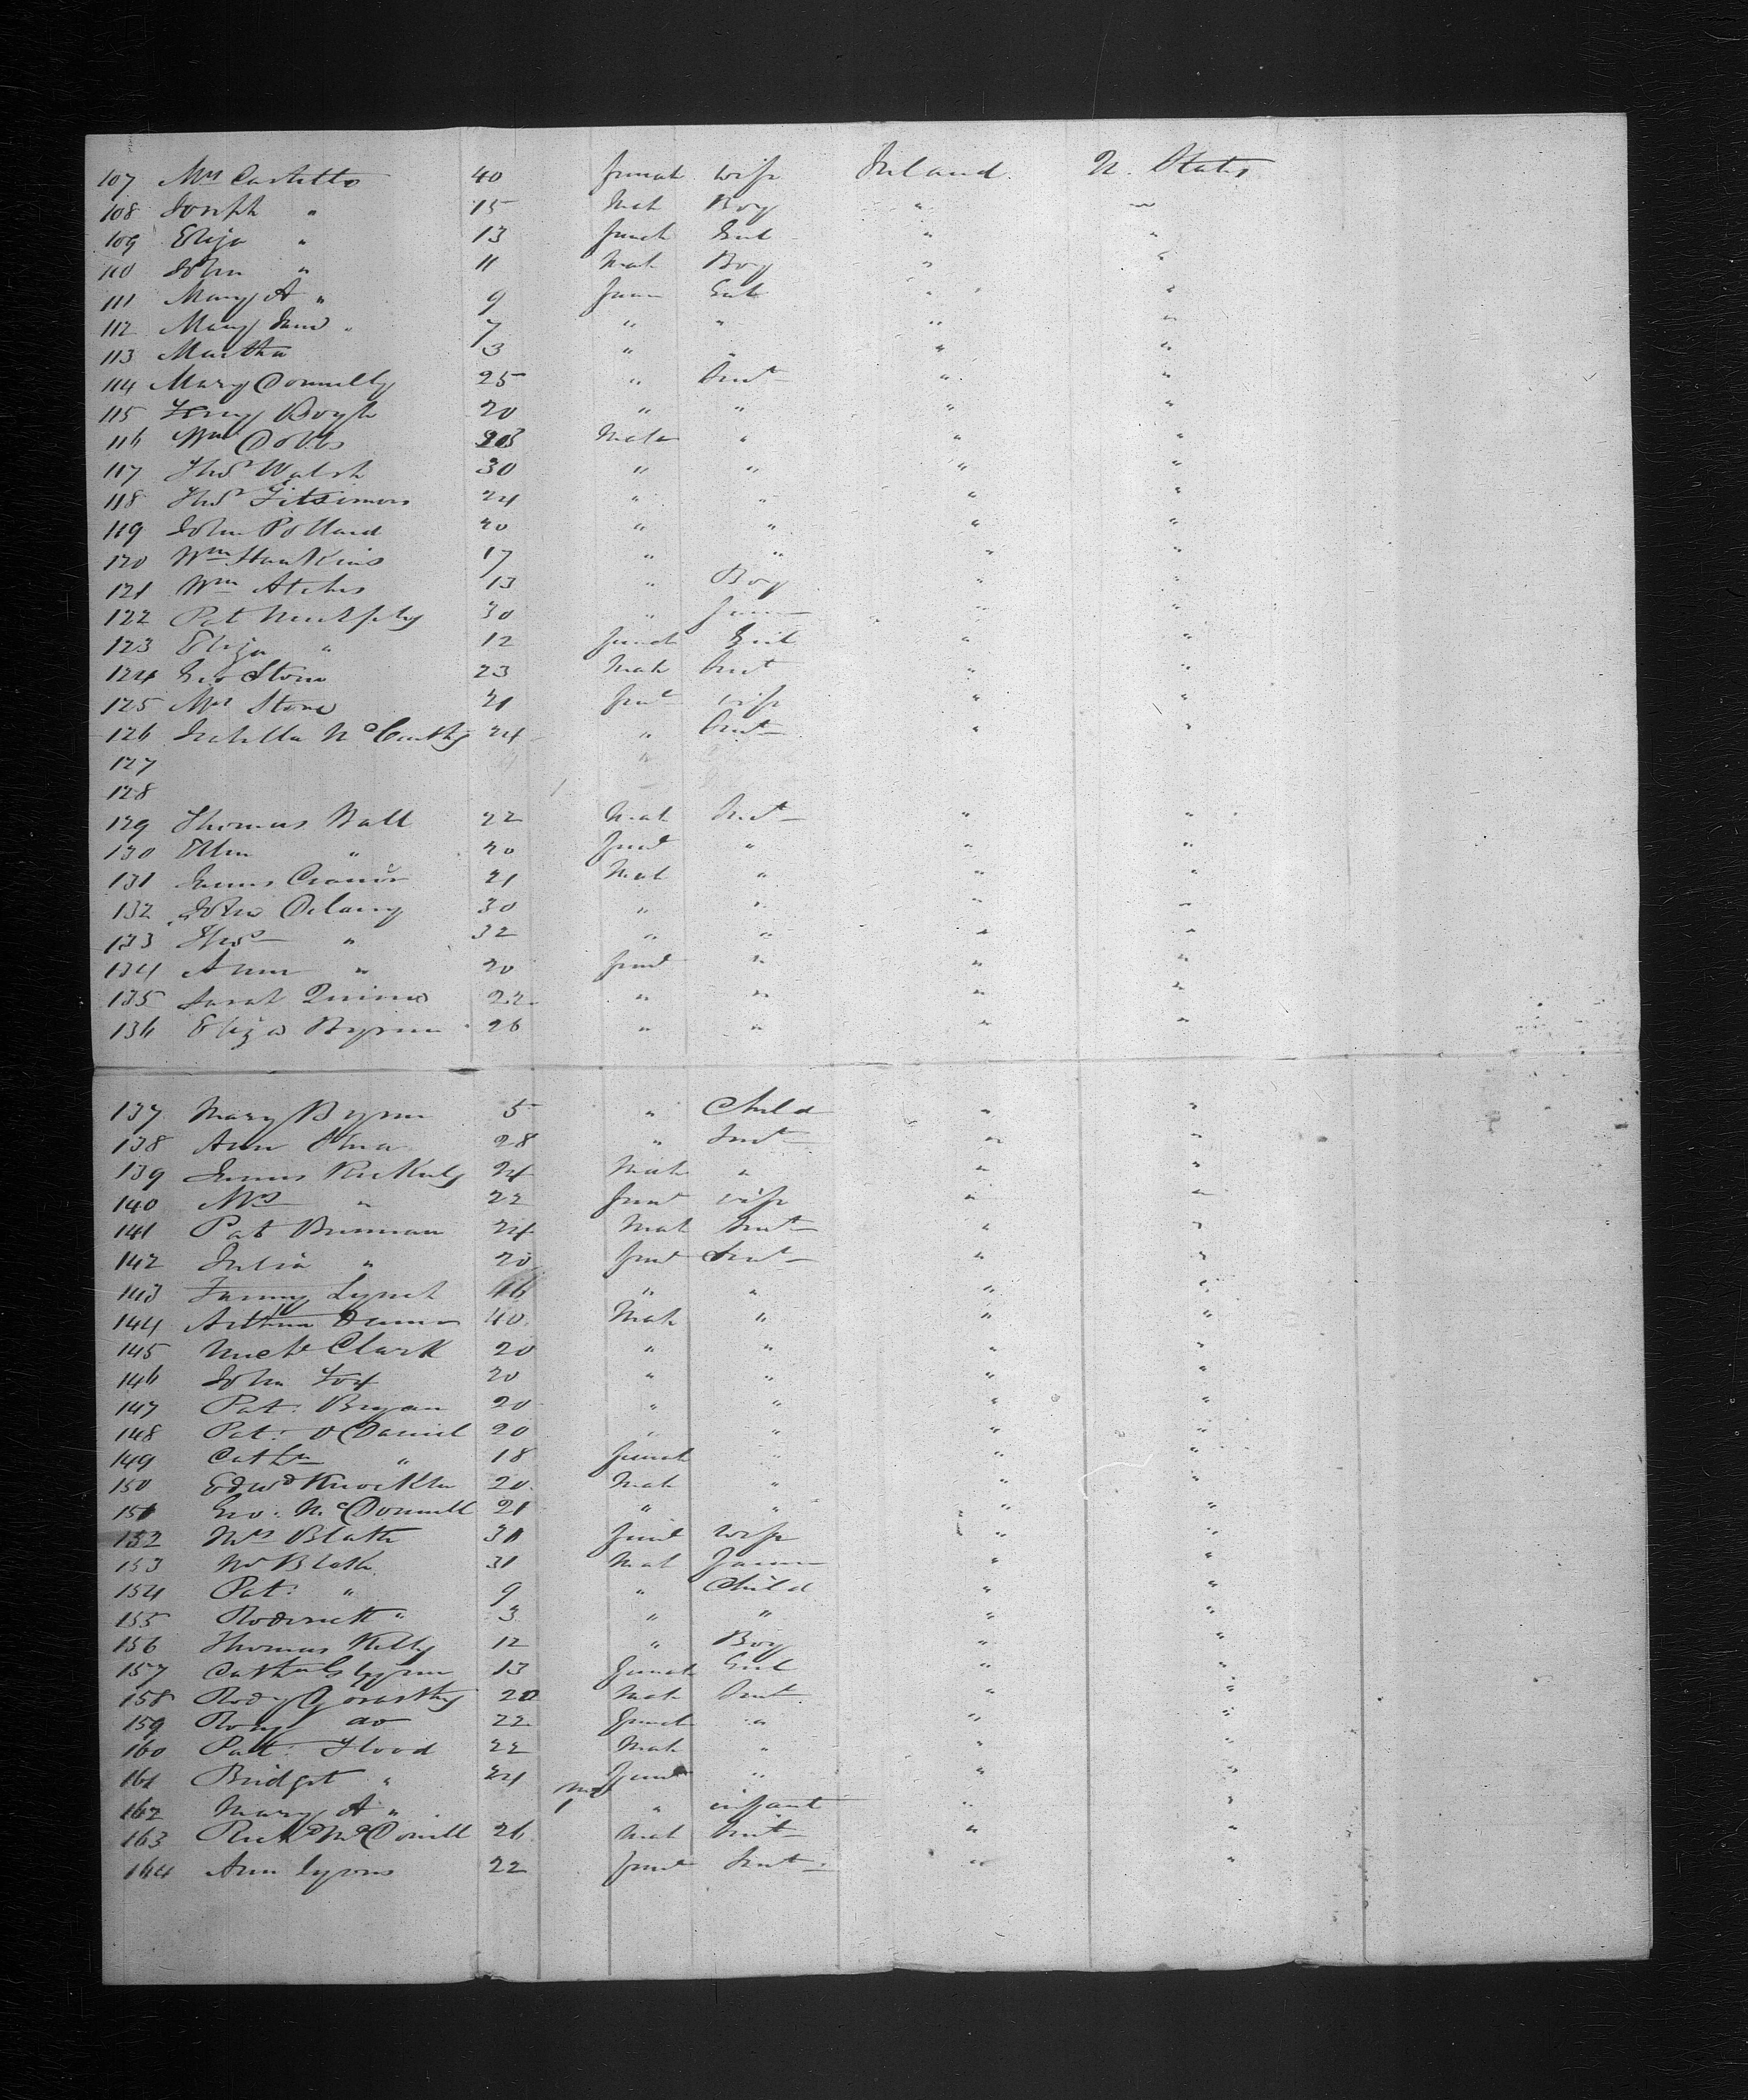 107 Mrs Costello 40 female wife Ireland U. States
108 Joseph " 15 Male Boy " "
109 Eliza " 13 female Girl " "
110 John " 11 Male Boy " "
111 Mary A " 9 fem Girl " "
112 Mary Jane " 7 " " " "
113 Martha 3 " " " "
114 Mary Donnelly 25 " " "
115 Boyle 20 " " " "
116 Wm Dobbs Male " " "
117 Thos Walsh 30 " " " "
118 Thos Fitsimons 24 " " " "
119 John Pollard 20 " " " "
120 Wm Hawkins 17 " " " "
121 Wm 13 " Boy " "
122 Pat Murphy 30 " " "
123 Eliza " 12 female Girl " "
124 Geo Stone 23 Male " "
125 Mrs Stone 21 fem wife " "
126 Isabella McCarthy 24 " " "
127
128
129 Thomas Wall 22 Male " "
130 Ellen " 20 fem " " "
131 James 21 Male " " "
132 John Delany 30 " " " "
133 Thos " 32 " " " "
134 Ann " 20 fem " " "
135 Sarah Quinn 22 " " " "
136 Eliza Byrne 26 " " " "
137 Mary Byrne 5 " Child " "
138 Ann 28 " " "
139 James 24 Male " " "
140 Mrs " 22 fem wife " "
141 Pat Brennan 24 Male " "
142 Julia " 20 fem " "
143 Fanny Lynch 16 " " " "
144 Arthur 40 Male " " "
145 Michl Clark 20 " " " "
146 John Fox 20 " " " "
147 Pat: Bryan 20 " " " "
148 Pat: O Daniel 20 " " " "
149 Cathn " 18 female " " "
150 Edwd 20 Male " " "
151 Geo: McDonnell 21 " " " "
152 Mrs Blake 31 fem wife " "
153 Mr Blake 31 Male " "
154 Pat: " 9 " Child " "
155 Roderick " 3 " " " "
156 Thomas Kelly 12 " Boy " "
157 Cathn Glynn 13 female Girl " "
158 Rody 20 Male " "
159 do 22 female " " "
160 Patt: Flood 22 Male " " "
161 Bridget " 24 fem " " "
162 Mary A " 1 " infant " "
163 Richd McDonell 26 Male " "
164 Ann Lyons 22 fem " "